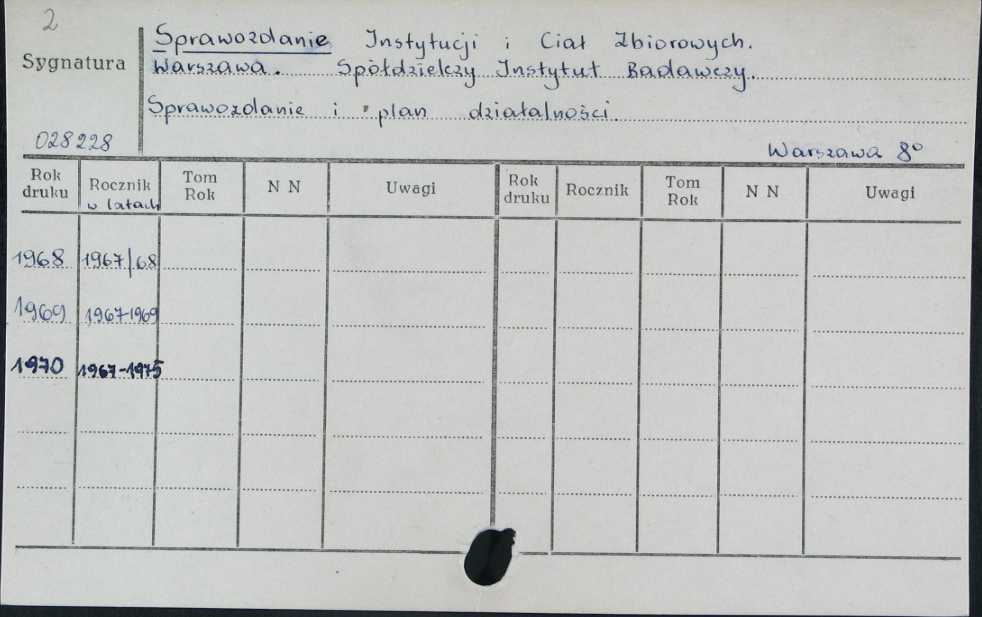 2
Sprawozdanie Instytucji i Ciał Zbiorowych.
Sygnatura
Warszawa. Spółdzielczy Instytut Badawczy.
Sprawozdanie i plan działalności.
028228
Warszawa 8°
Rok druku Rocznik w latach Tom Rok N N Uwagi Rok druku Rocznik Tom Rok N N Uwagi
1968 1967/68
1969 1967-1969
1970 1967-1975